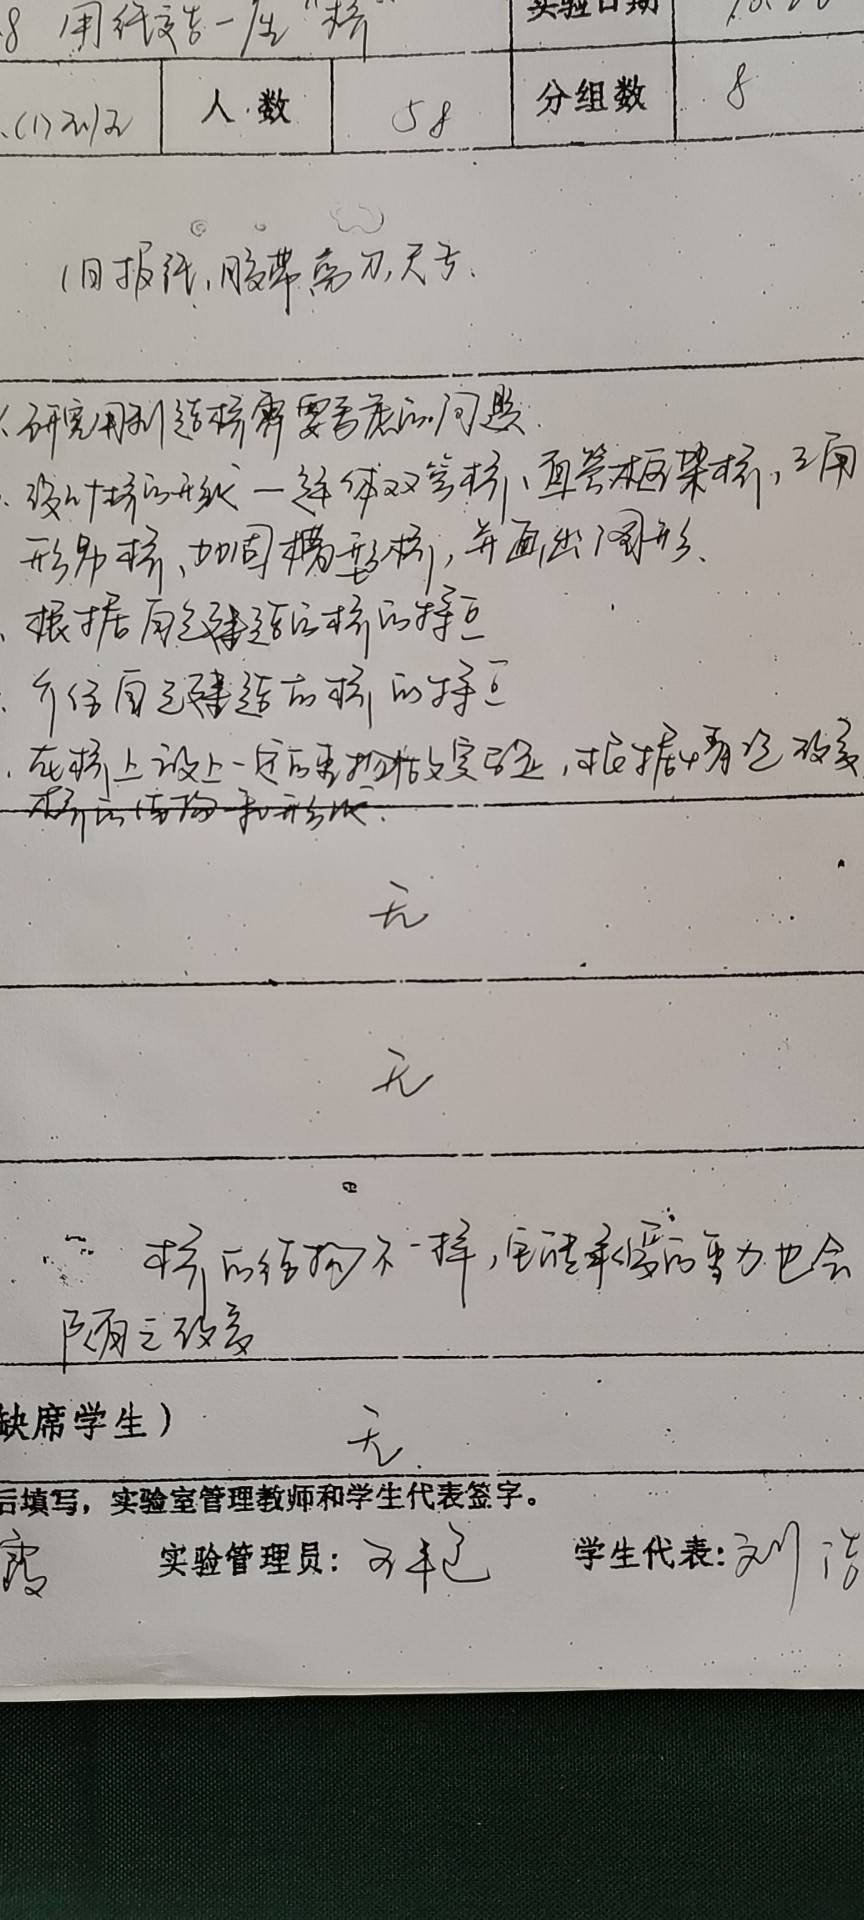 8 用纸造一座“桥” 实验日期
(1)班 人数 58 分组数 8
旧报纸、胶带、剪刀、尺子、
研究用纸造桥需要考虑的问题.
设计桥的形状—整体双管桥、直管框架桥,三角
形桥、加固槽型桥,并画出图形、
根据自己建造的桥的特点
介绍自己建造的桥的特点
在桥上放上一定的重物做实验,根据情况改变
桥的结构和形状.
无
无
桥的结构不一样,它能承受的重力也会
随之改变
缺席学生) 无.
后填写，实验室管理教师和学生代表签字。
霞 实验管理员: 学生代表: 刘洁